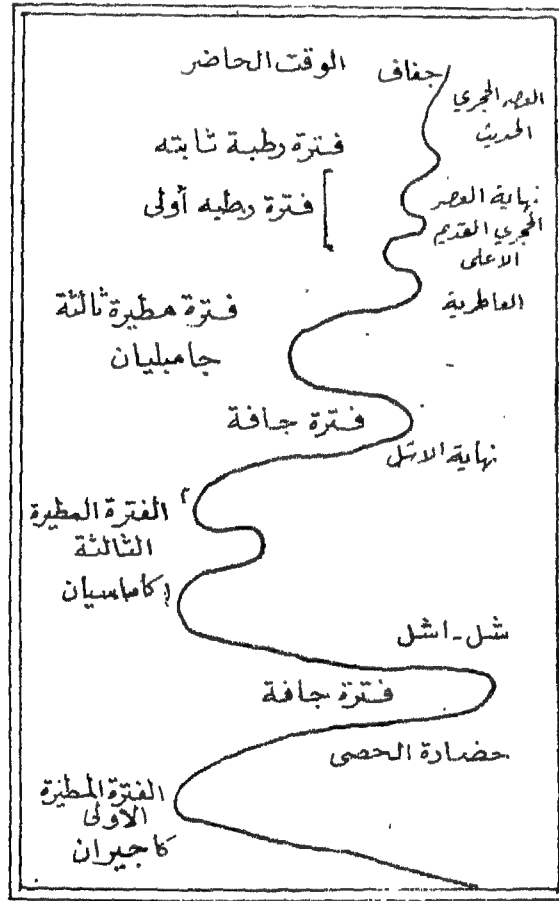 جفاف الوقت الحاضر
العصر الحجري
الحديث
فترة رطبة ثابته
نهاية العضر
الحجري القديم
الاعلى
فترة رطبه أولى
العاطرية
فترة مطيرة ثالثة
جامبليان
فترة جافة
نهاية الاشل
٢ الفترة المطيرة
الثالثة
١ كاماسيان
شل - اشل
فترة جافة
حضارة الحصى
الفترة المطيرة
الاولى
كاجيران